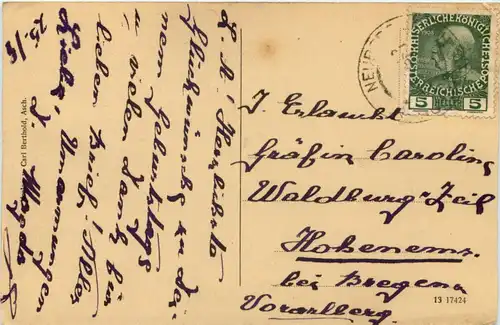 15/8
L. K! Herzlichste
Glückwünsche zu Dei-
nem Geburtstage
u. vielen Dank für
lieben Brief! Alles
Liebe, Umarmungen
Magda
Carl Berthold, Asch.
KAISERLICHE KÖNIGLICHE ÖSTERREICHISCHE
1908
5 5
I. Erlaucht
Gräfin Caroline
Waldburg-Zeil
Hohenems.
bei Bregenz
Vorarlberg.
13 17424